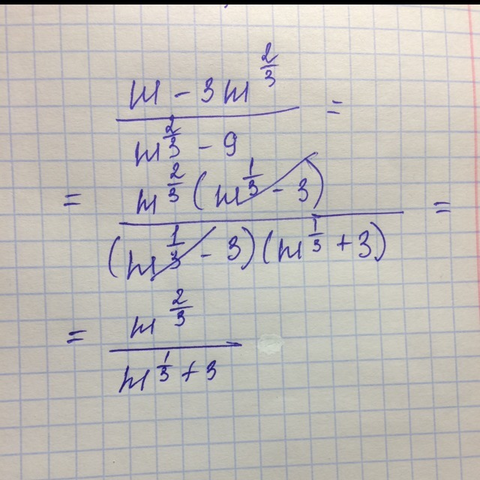 m - 3m^{2/3}
/ m^{2/3} - 9 =
= m^{2/3} (m^{1/3} - 3)
/ (m^{1/3} - 3)(m^{1/3} + 3) =
= m^{2/3}
/ m^{1/3} + 3